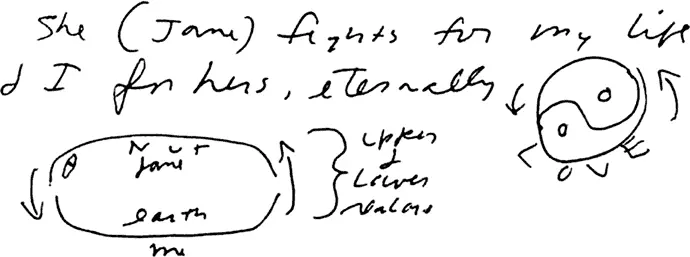 She (Jane) fights for my life
& I for hers, eternally
Nut
Jane
earth
me
upper
&
Lower
realms